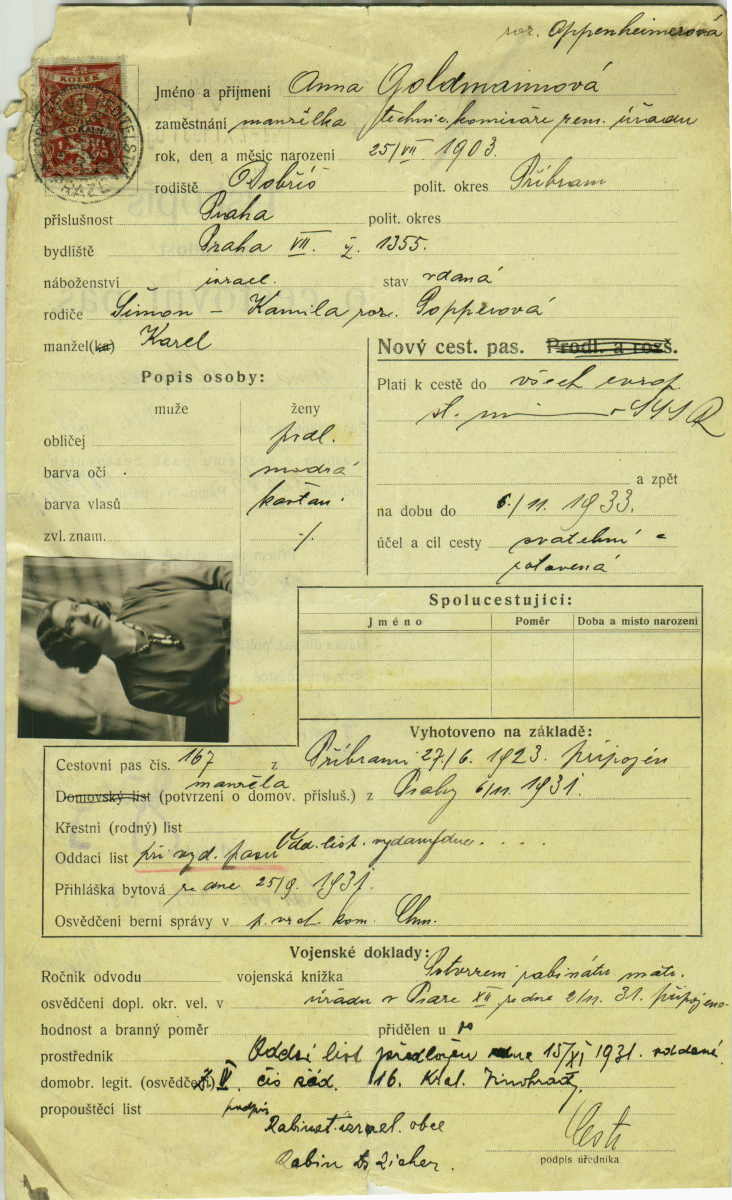 roz. Oppenheimerová
KOLEK
Jméno a přijmení Anna Goldmannová
zaměstnání manželka technic. komisaře zem. úřadu
rok, den a měsic narození 25/VII 1903.
rodiště Dobříš polit. okres Příbram
příslušnost Praha polit. okres
bydliště Praha VII. č. 1355.
náboženství israel. stav vdaná
rodiče Šimon - Kamila roz. Popperová
manžel(ka) Karel
Nový cest. pas. Prodl. a rozš.
Popis osoby:
Platí k cestě do všech evrop
muže ženy
st.
obličej podl.
barva očí modrá
a zpět
barva vlasů kaštan.
na dobu do 6/11. 1933.
zvl. znam. ·/.
účel a cíl cesty svatební
Spolucestujicí:
Jméno Poměr Doba a místo narození
Vyhotoveno na základě:
Cestovní pas čís. 167 z Příbrami 27./6. 1923. připojen
manžela
Domovský list (potvrzení o domov. přísluš.) z Prahy 6/11. 1931.
Křestní (rodný) list
Oddací list při vyd. pasu Odd. list.
Přihláška bytová ze dne 25/9. 1931.
Osvědčení berní správy v
Vojenské doklady:
Ročník odvodu vojenská knížka Potvrzení rabinátu
osvědčení dopl. okr. vel. v úřadu v Praze XII ze dne 2/11. 31. připojeno.
hodnost a branný poměr přidělen u
prostředník Oddací list předložen dne 15/XI 1931.
domobr. legit. (osvědčení) IV. čís 16. Král. Vinohrady,
propouštěcí list podpis
Rabinát israel. obce
Rabín Dr Zicher.
podpis úředníka